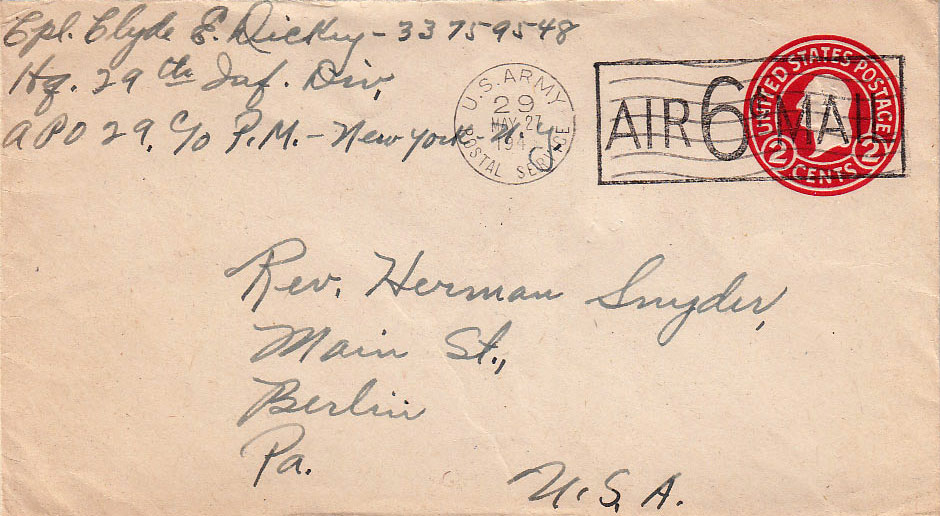 Cpl. Clyde E. Dickey - 33759548
Hq. 29th Inf. Div.
APO 29, c/o P.M. - New York - N.Y.
U.S. ARMY
29
MAY 27
194
POSTAL SERVICE
AIR 6¢ MAIL
UNITED STATES POSTAGE
2 CENTS 2
Rev. Herman Snyder,
Main St.,
Berlin
Pa.
U.S.A.